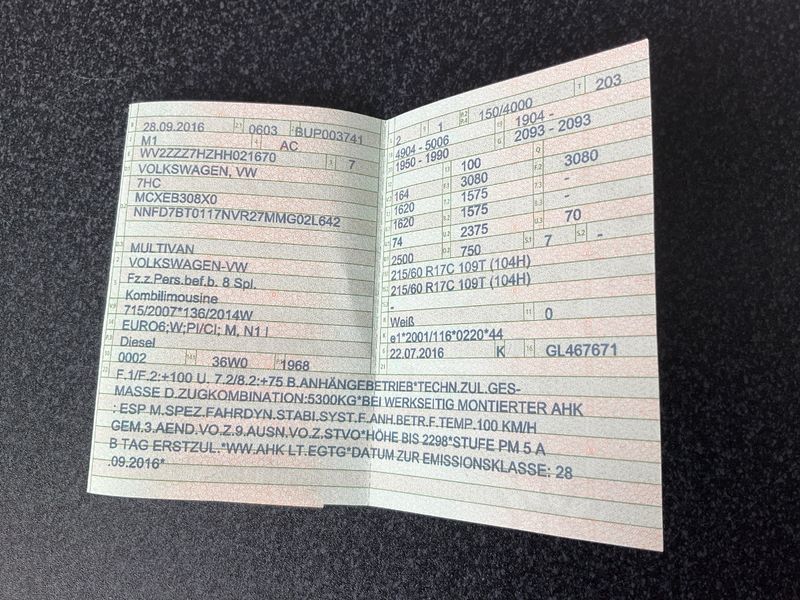 28.09.2016 0603 BUP003741
M1 AC
WV2ZZZ7HZHH021670 7
VOLKSWAGEN, VW
7HC
MCXEB308X0
NNFD7BT0117NVR27MMG02L642
MULTIVAN
VOLKSWAGEN-VW
Fz.z.Pers.bef.b. 8 Spl.
Kombilimousine
715/2007*136/2014W
EURO6;W;PI/CI; M, N1 I
Diesel
0002 36W0 1968
2 1 150/4000 203
4904 - 5006 1904 -
1950 - 1990 2093 - 2093
100
164 3080 3080
1620 1575 -
1620 1575 -
74 2375 70
2500 750 7 -
215/60 R17C 109T (104H)
215/60 R17C 109T (104H)
-
Weiß 0
e1*2001/116*0220*44
22.07.2016 K GL467671
F.1/F.2:+100 U. 7.2/8.2:+75 B.ANHÄNGEBETRIEB*TECHN.ZUL.GES-
MASSE D.ZUGKOMBINATION:5300KG*BEI WERKSEITIG MONTIERTER AHK
: ESP M.SPEZ.FAHRDYN.STABI.SYST.F.ANH.BETR.F.TEMP.100 KM/H
GEM.3.AEND.VO.Z.9.AUSN.VO.Z.STVO*HÖHE BIS 2298*STUFE PM 5 A
B TAG ERSTZUL.*WW.AHK LT.EGTG*DATUM ZUR EMISSIONSKLASSE: 28
.09.2016*